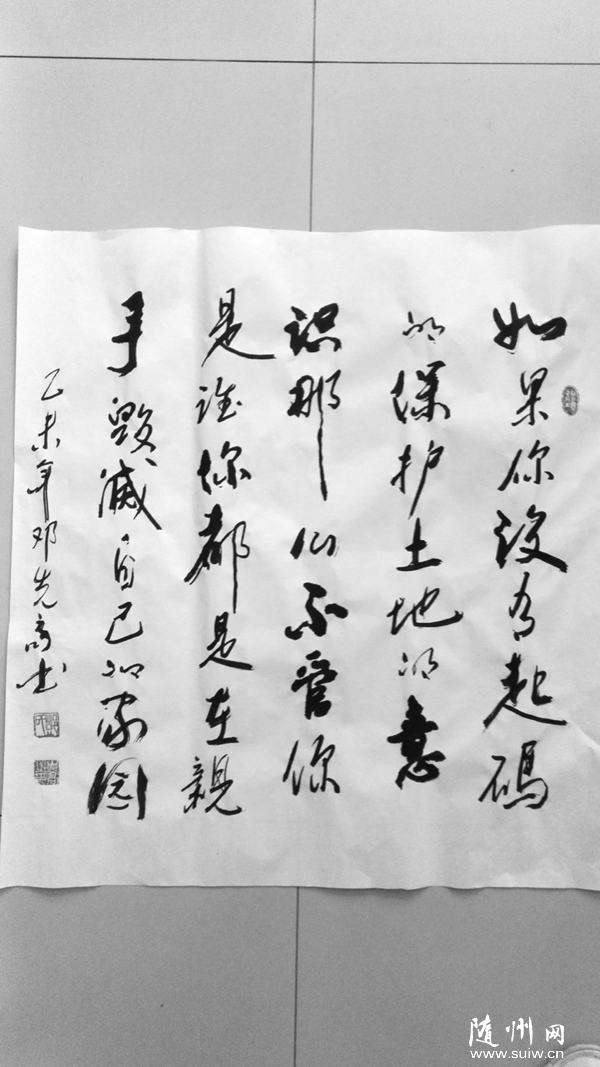 如果你没有起码
的保护土地的意
识那么不管你
是谁你都是在親
手毁滅自己的家园
乙未年邓先高书
随州网
www.suiw.cn